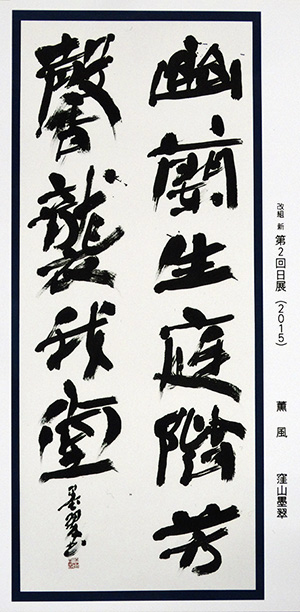 幽蘭生庭階芳
馨襲我堂
墨翠書
改組 新 第2回日展(2015) 薫風 窪山墨翠